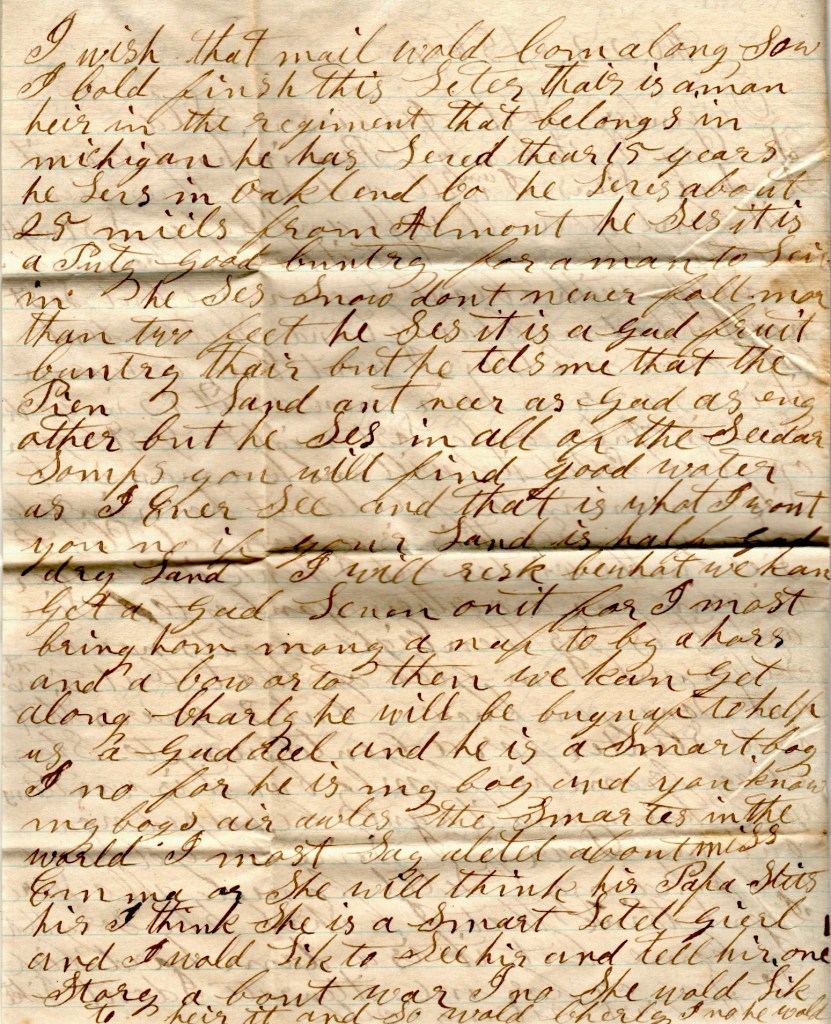 I wish that mail wold Com along Sow
I Cold finish this Leter thair is a man
heir in the regiment that belongs in
michigan he has Lered thear 15 years
he Lers in Oaklend Co he Leres about
25 miels from Almont he Ses it is
a Puty good Cuntry for a man to Leir
in he Ses Snow dont never fall mor
than two feet he Ses it is a gud fruit
Cuntry thair but he tels me that the
Pien Land ant neer as gud as eng
other but he Ses in all of the Seedar
Somps you will find good water
as I Ever See and that is what I wont
you no if your Land is half gud
dry Land I will resk but what we kan
get a gud Leven on it for I most
bring hom mony a nuf to by a hors
and a Cow or to then we kan get
along Charly he will be bug nuf to help
us a gud deel and he is a Smart boy
I no for he is my boy and you know
my boys air awles the Smartes in the
world I most Say a letel about miss
Emma or She will think hir Papa Slits
hir I think She is a Smart Letel gierl
and I wold Lik to See hir and tell hir one
Story a bout war I no She wold Lik
to heir it and So wold Charly I no he wold